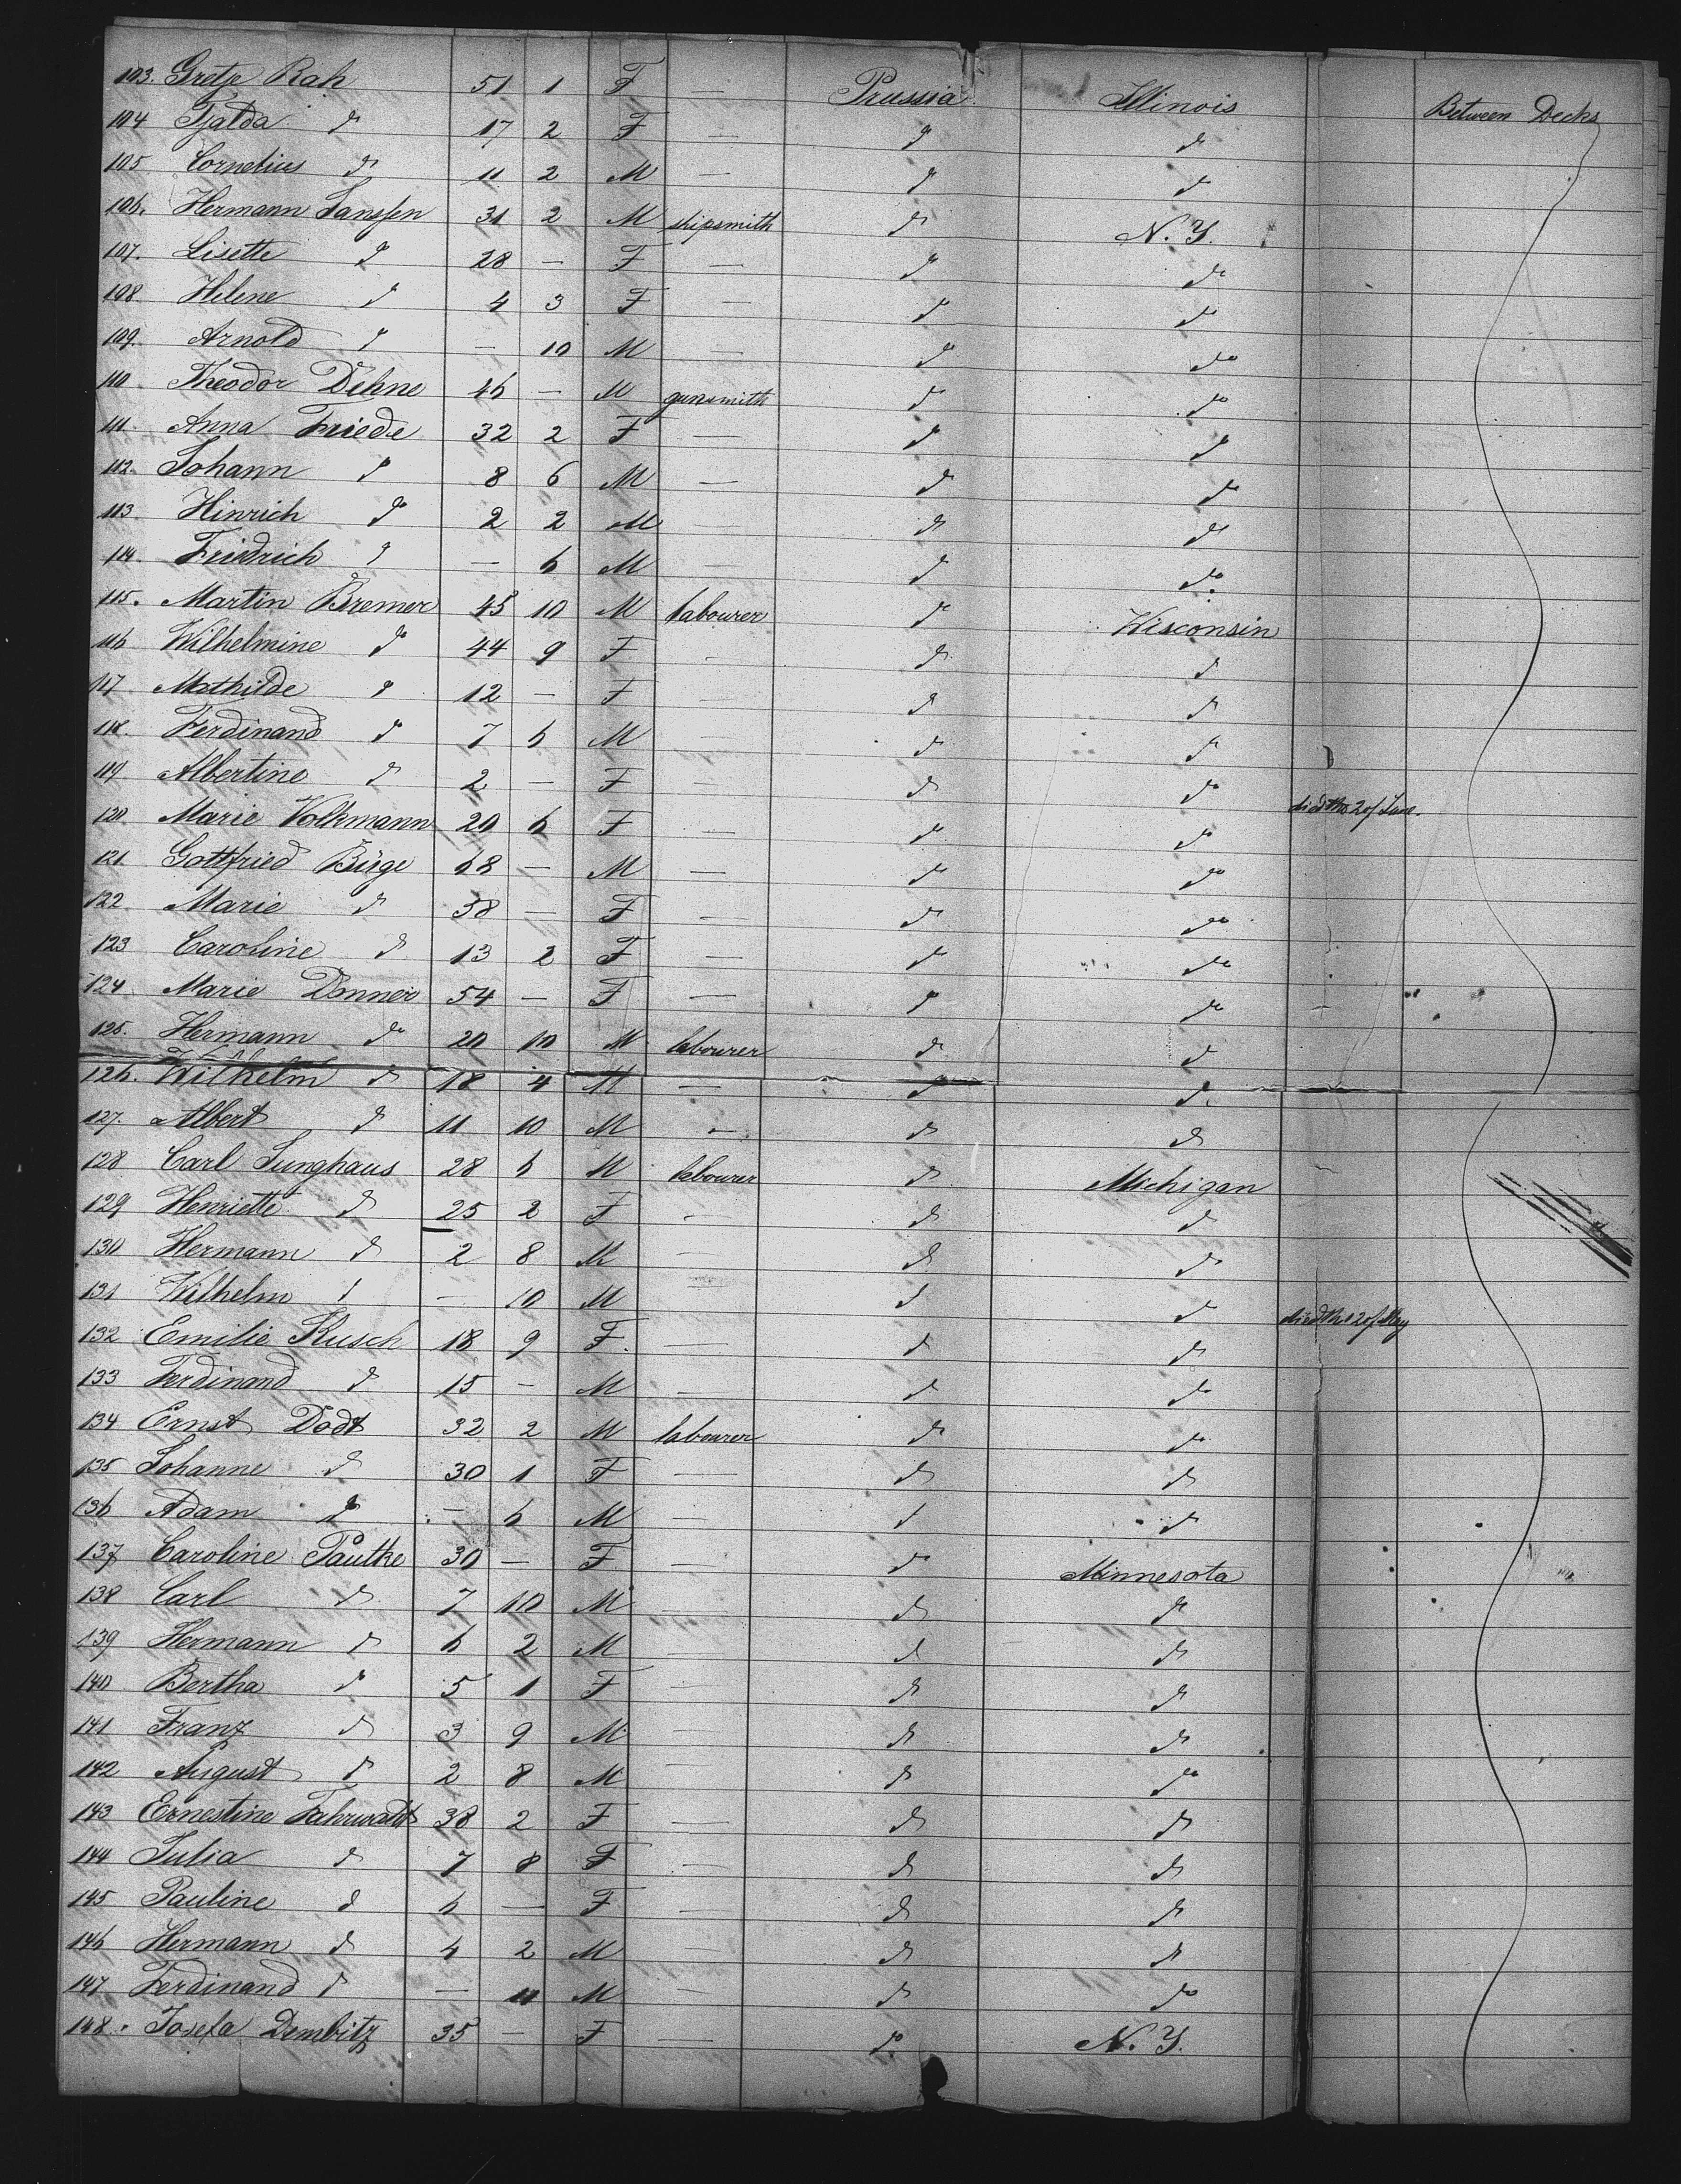 103. Gretje Rah 51 1 F — Prussia Illinois Between Decks
104 Tjalda do 17 2 F — do do
105 Cornelius do 11 2 M — do do
106. Hermann Janssen 31 2 M shipsmith do N. Y.
107. Lisette do 28 — F — do do
108 Helene do 4 3 F — do do
109. Arnold do — 10 M — do do
110. Theodor Dehne 46 — M gunsmith do do
111. Anna Friede 32 2 F — do do
112. Johann do 8 6 M — do do
113. Hinrich do 2 2 M — do do
114. Friedrich do — 6 M — do do
115. Martin Bremer 45 10 M labourer do Wisconsin
116 Wilhelmine do 44 9 F — do do
117 Mathilde do 12 — F — do do
118. Ferdinand do 7 6 M — do do
119. Albertine do 2 — F — do do died the 2 of June.
120 Marie Volkmann 20 6 F — do do
121 Gottfried Büge 68 — M — do do
122 Marie do 38 — F — do do
123 Caroline do 13 2 F — do do
124 Marie Donner 54 — F — do do
125. Hermann do 20 10 M labourer do do
126. Wilhelm do 18 4 M — do do
127. Albert do 11 10 M — do do
128 Carl Junghaus 28 6 M labourer do Michigan
129 Henriette do 25 2 F — do do
130 Hermann do 2 8 M — do do
131 Wilhelm do — 10 M — do do died the 2 of May
132 Emilie Kusch 18 9 F. — do do
133 Ferdinand do 15 — M — do do
134 Ernst Dodt 32 2 M labourer do do
135 Johanne do 30 1 F — do do
136 Adam do — 6 M — do do
137 Caroline Pautke 30 — F — do Minnesota
138 Carl do 7 10 M — do do
139 Hermann do 6 2 M — do do
140 Bertha do 5 1 F — do do
141 Franz do 3 9 M — do do
142 August do 2 8 M — do do
143 Ernestine Fahrwaldt 38 2 F — do do
144 Julia do 7 8 F — do do
145 Pauline do 6 — F — do do
146 Hermann do 4 2 M — do do
147 Ferdinand do — 11 M — do do
148. Josefa Dembitz 35 — F — do N. Y.